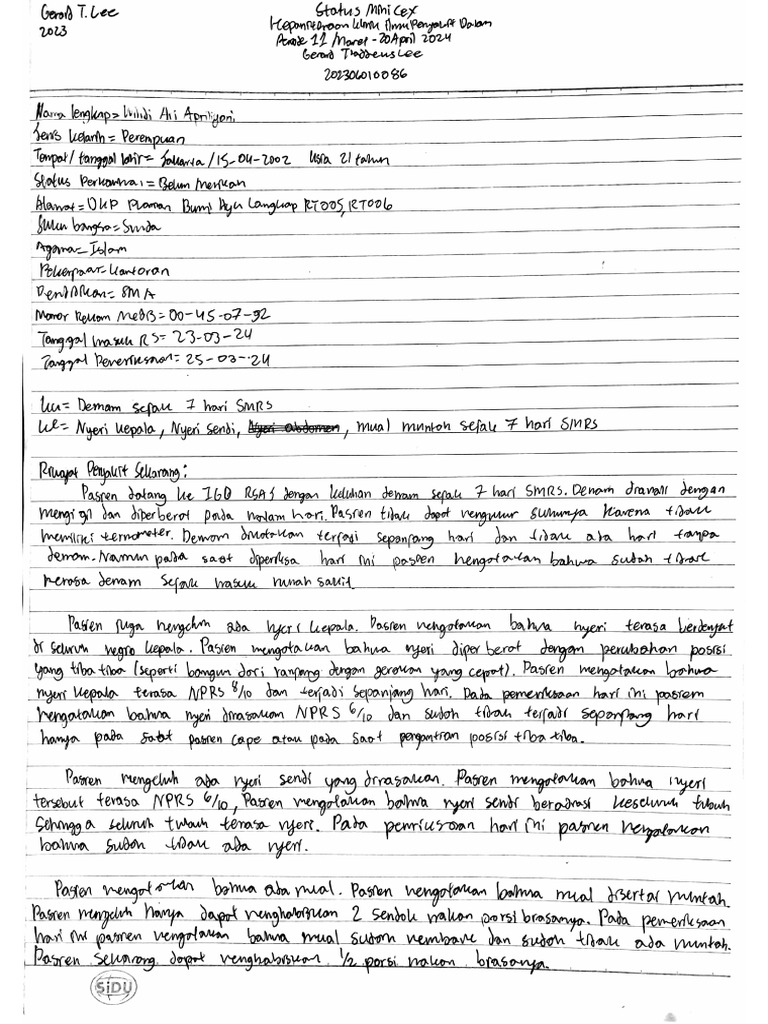 Gerard T. Lee
2023
Status Mini Cex
Kepaniteraan Klinik Ilmu Penyakit Dalam
Periode 11 Maret - 20 April 2024
Gerard Thaddeus Lee
202306010086
Nama lengkap = Widi Ari Apriliyani
Jenis kelamin = Perempuan
Tempat/tanggal lahir = Jakarta/15-04-2002 Usia 21 tahun
Status Perkawinan = Belum Menikah
Alamat = Bumi Ayu RT005, RT006
Suku bangsa = Sunda
Agama = Islam
Pekerjaan = Kantoran
Pendidikan = SMA
Nomor Rekam Medis = 00-45-07-92
Tanggal masuk RS = 23-03-24
Tanggal Pemeriksaan = 25-03-24
KU = Demam sejak 7 hari SMRS
KT = Nyeri kepala, Nyeri sendi, Nyeri abdomen, mual muntah sejak 7 hari SMRS
Riwayat Penyakit Sekarang:
Pasien datang ke IGD RSAJ dengan keluhan demam sejak 7 hari SMRS. Demam dialami dengan
mengigil dan diperberat pada malam hari. Pasien tidak dapat mengukur suhunya karena tidak
memiliki termometer. Demam dikatakan terjadi sepanjang hari dan tidak ada hari tanpa
demam. Namun pada saat diperiksa hari ini pasien mengatakan bahwa sudah tidak
merasa demam sejak masuk rumah sakit.
Pasien juga mengeluh ada nyeri kepala. Pasien mengatakan bahwa nyeri terasa berdenyut
di seluruh regio kepala. Pasien mengatakan bahwa nyeri diperberat dengan perubahan posisi
yang tiba tiba (seperti bangun dari ranjang dengan gerakan yang cepat). Pasien mengatakan bahwa
nyeri kepala terasa NPRS 8/10 dan terjadi sepanjang hari. Pada pemeriksaan hari ini pasien
mengatakan bahwa nyeri dirasakan NPRS 6/10 dan sudah tidak terjadi sepanjang hari
hanya pada saat pasien cape atau pada saat pergantian posisi tiba tiba.
Pasien mengeluh ada nyeri sendi yang dirasakan. Pasien mengatakan bahwa nyeri
tersebut terasa NPRS 6/10, Pasien mengatakan bahwa nyeri sendi beradiasi keseluruh tubuh
sehingga seluruh tubuh terasa nyeri. Pada pemriksaan hari ini pasien mengatakan
bahwa sudah tidak ada nyeri.
Pasien mengatakan bahwa ada mual. Pasien mengatakan bahwa mual disertai muntah.
Pasien mengeluh hanya dapat menghabiskan 2 sendok makan porsi biasanya. Pada pemeriksaan
hari ini pasien mengatakan bahwa mual sudah membaik dan sudah tidak ada muntah.
Pasien sekarang dapat menghabiskan 1/2 porsi makan biasanya.
SiDU